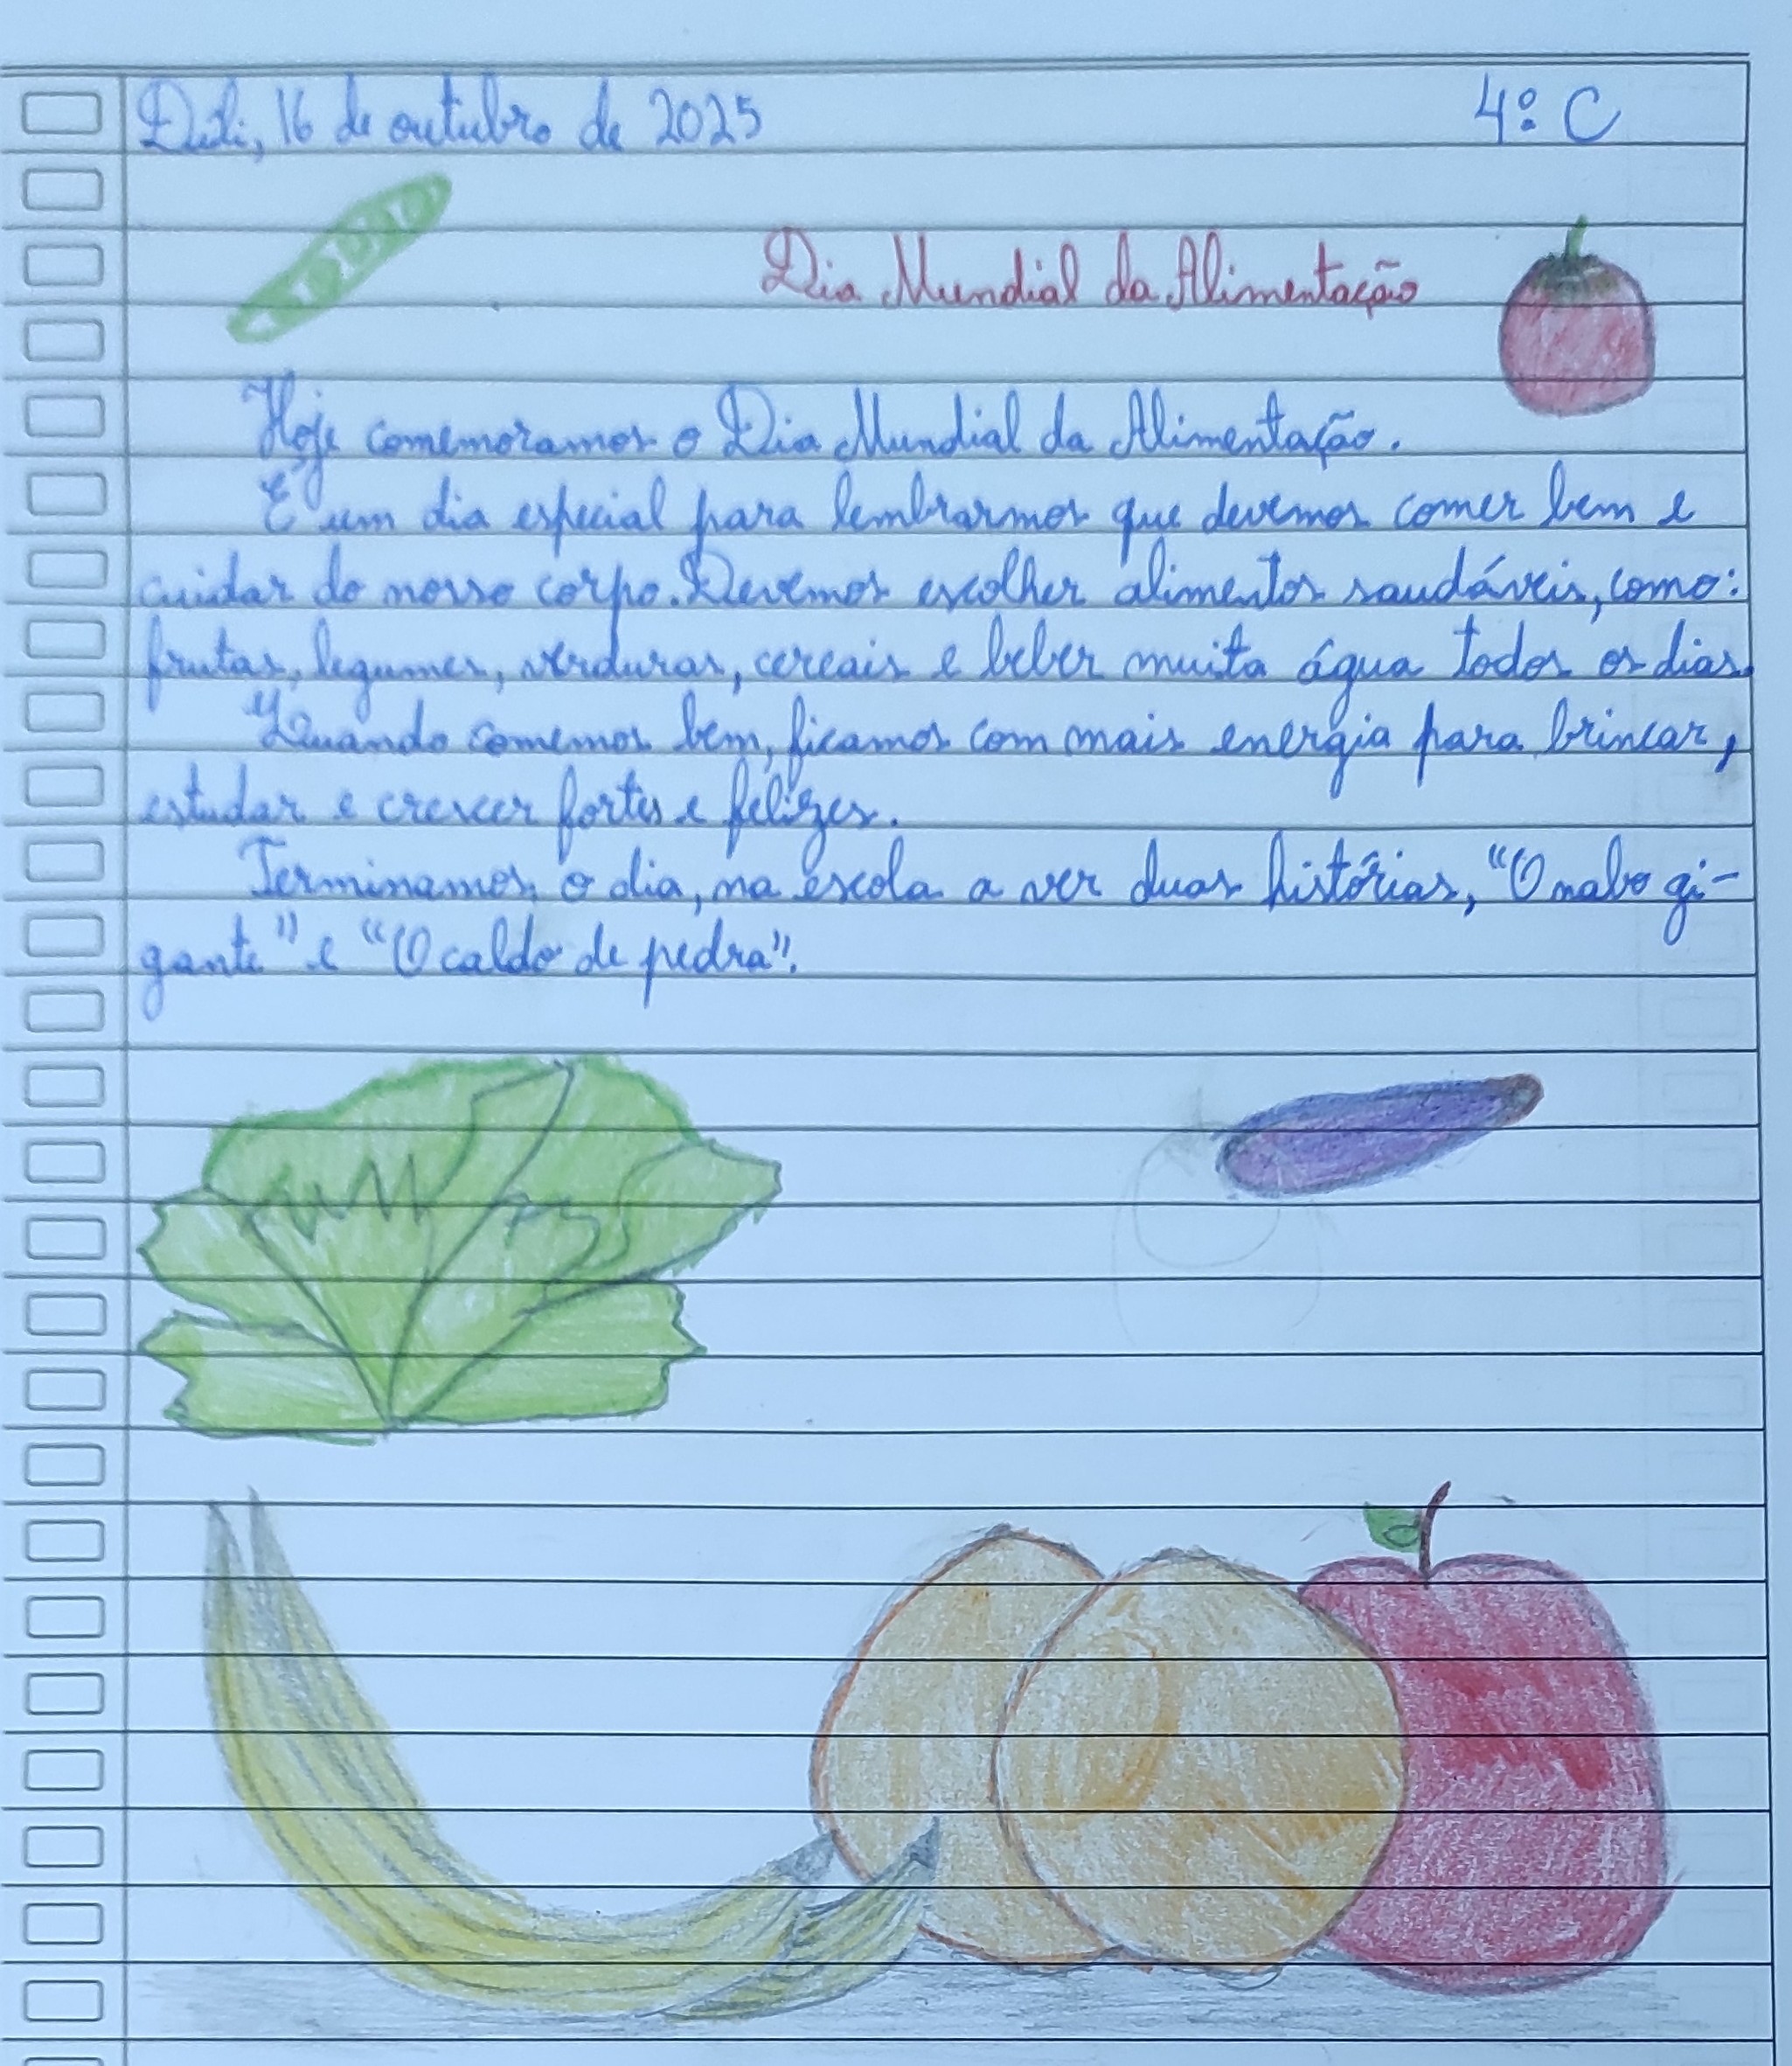 Díli, 16 de outubro de 2025 4º C
Dia Mundial da Alimentação
Hoje comemoramos o Dia Mundial da Alimentação.
É um dia especial para lembrarmos que devemos comer bem e
cuidar do nosso corpo. Devemos escolher alimentos saudáveis, como:
frutas, legumes, verduras, cereais e beber muita água todos os dias.
Quando comemos bem, ficamos com mais energia para brincar,
estudar e crescer fortes e felizes.
Terminamos, o dia, na escola a ver duas histórias, "O nabo gi-
gante" e "O caldo de pedra".